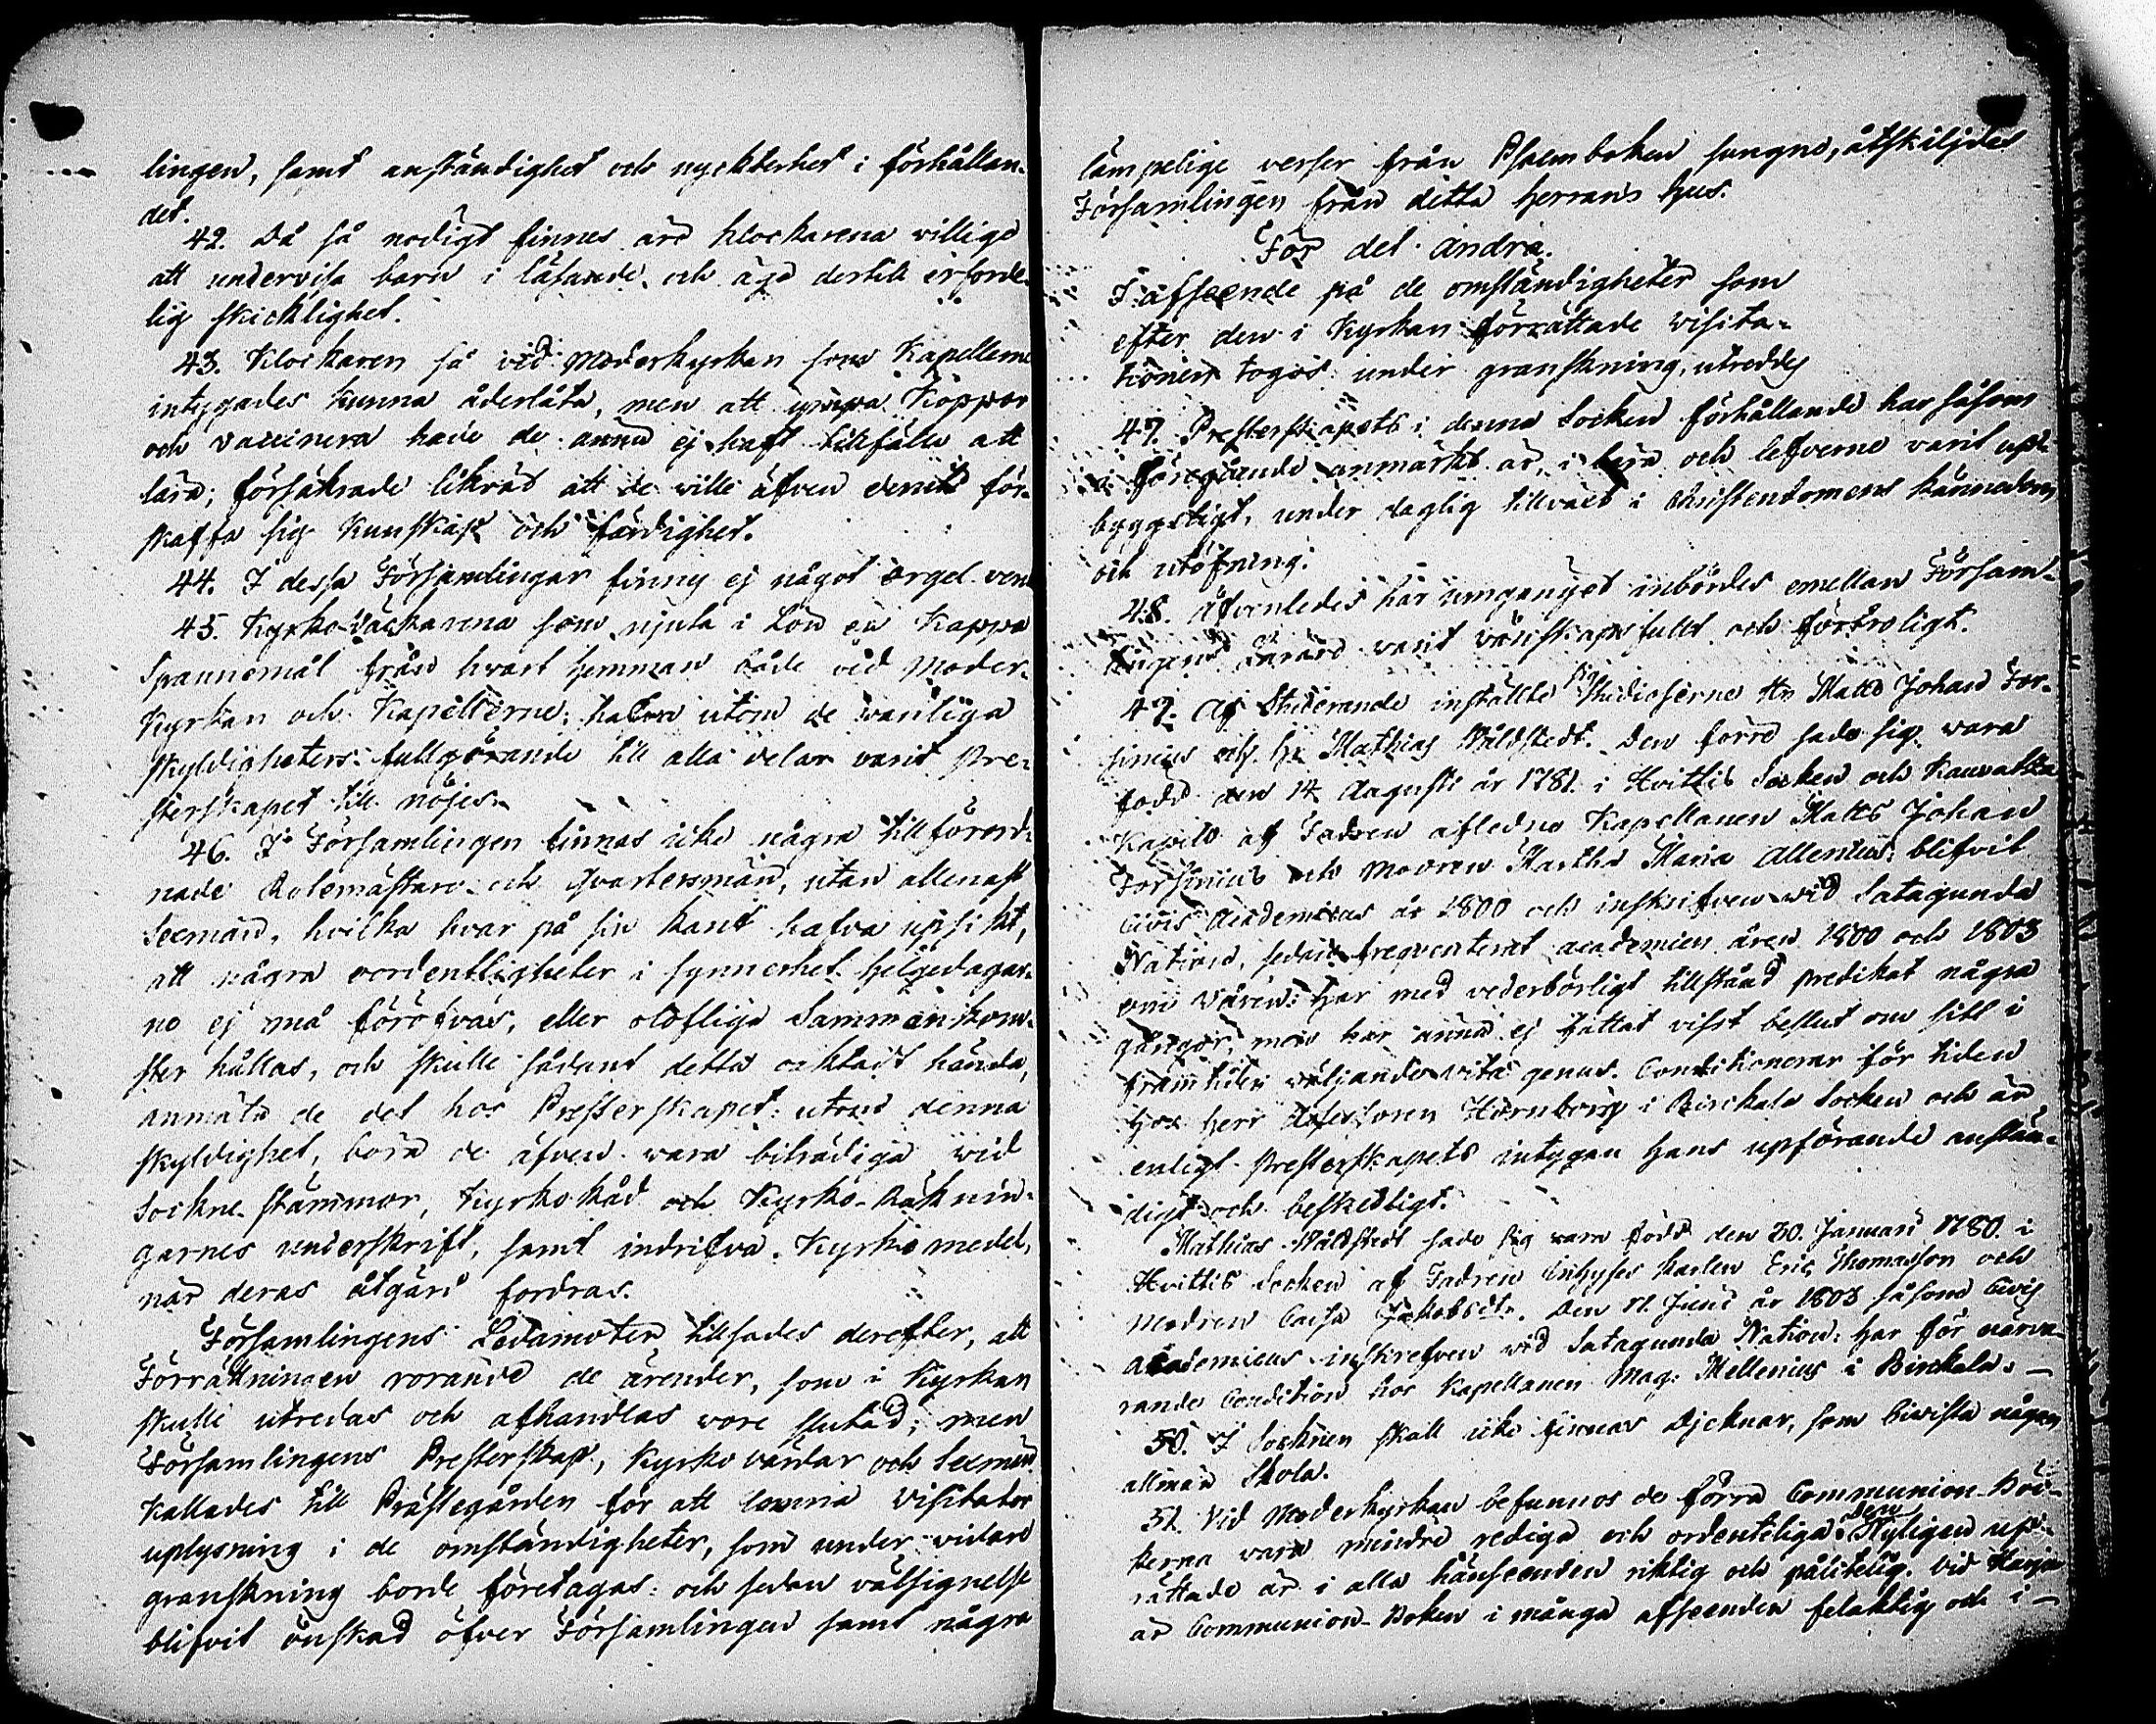 lingen, samt anständighet och nyckterhet i förhållan-
det.
42. Då så nödigt finnes äro Klockarena villige
att undervisa barn i läsande, och äga dertill erforde-
lig skicklighet.
43. Klockaren så vid Moderkyrkan som Kapellerne
intygades kunna åderlåta, men att ympa Koppor
och vaccinera hade de ännu ej haft tillfälle att
lära; försäkrade likväl att de ville äfven deruti för-
skaffa sig Kunskap och färdighet.
44. I dessa Församlingar finnes ej något orgel-verk
45. Kyrko-Väcktarena som njuta i Lön en Kappe
Spannemål från hvart hemman både vid Moder-
Kyrkan och Kapellerne; hafva utom de vanliga
skyldigheters fullgörande till alla delar varit Pre-
sterskapet till nöjes.
46. I Församlingen finnas icke några tillförord-
nade Rotemästare och Qvartersmän, utan allenast
Sexmän, hvilka hvar på sin Kant hafva upsikt,
att några oordentligheter i synnerhet helgedagar-
ne ej må föröfvas, eller olofliga Sammankom-
ster hållas, och skulle sådant detta oaktadt hända,
anmäla de det hos Presterskapet: utom denna
skyldighet, böra de äfven vara biträdiga vid
Sockne-stämmor, Kyrkoråd och Kyrko-Räknin-
garnes underskrift, samt indrifva Kyrkomedel,
när deras åtgärd fordras.
Församlingens Ledamöter tillsades derefter, att
Förrättningen rörande de ärender, som i Kyrkan
skulle utredas och afhandlas vore slutad; men
Församlingens Presterskap, Kyrkovärdar och Sexmän
Kallades till Prästegården för att lemna Visitator
uplysning i de omständigheter, som under vidare
granskning borde företagas: och sedan välsignelse
blifvit önskad öfver Församlingen samt några
lämpelige verser från Psalmboken sungne, åtskiljdes
Församlingen från detta Herrans hus.
För det andra.
I afseende på de omständigheter som
efter den i Kyrkan förrättade visita-
tionen togos under granskning, utreddes
47. Presterskapets i denna Socken förhållande har såsom
i föregående anmärkt är, i lära och lefverne varit upp-
byggeligt, under daglig tillväxt i Christendomens Kännedom
och utöfning.
48. Äfvenledes har umgänget inbördes emellan Försam-
lingens Lärare varit vänskapsfullt och förtroligt.
49. Af Studerande inställte sig Studioserne Hr Matts Johan For-
sinius och Hr Mathias Wåldstedt. Den förre sade sig vara
född den 14 Augusti år 1781 i Hvittis Socken och Kauvatsa
Kapell af Fadren afledne Kapellanen Matts Johan
Forsinius och Modren Martha Maria Allenius; blifvit
Civis Academicus år 1800 och inskrifven vid Satagunda
Nation, sedan frequenterat academien åren 1800 och 1803
om våren: Har med vederbörligt tillstånd predikat några
gångor, men har ännu ej fattat visst beslut om sitt i
framtiden väljande vitæ genus. Conditionerar för tiden
hos Herr Assessoren Hornborg i Birckala Socken och är
enligt Presterskapets intygan hans upförande anstän-
digt och beskedligt.
Mathias Wåldstedt sade sig vara född den 30 Januari 1780 i
Hvittis Socken af Fadren Inhyses Karlen Eric Thomasson och
Modren Caisa Jakobsdtr. Den 11 Junii år 1803 såsom Civis
academicus inskrefven vid Satagunda Nation: har för närva-
rande Condition hos Kapellanen Mag: Mellenius i Birckala. —
50. I Socknen skall icke finnas Djeknar, som bivista någon
allmän Skola.
51. Vid Moderkyrkan befunnos de förra Communion-Böc-
kerna vara mindre rediga och ordenteliga: Den Nyligen up-
rättade är i alla hänseenden riktig och pålitelig. Vid
är Communion-Boken i många afseenden felaktig och i —